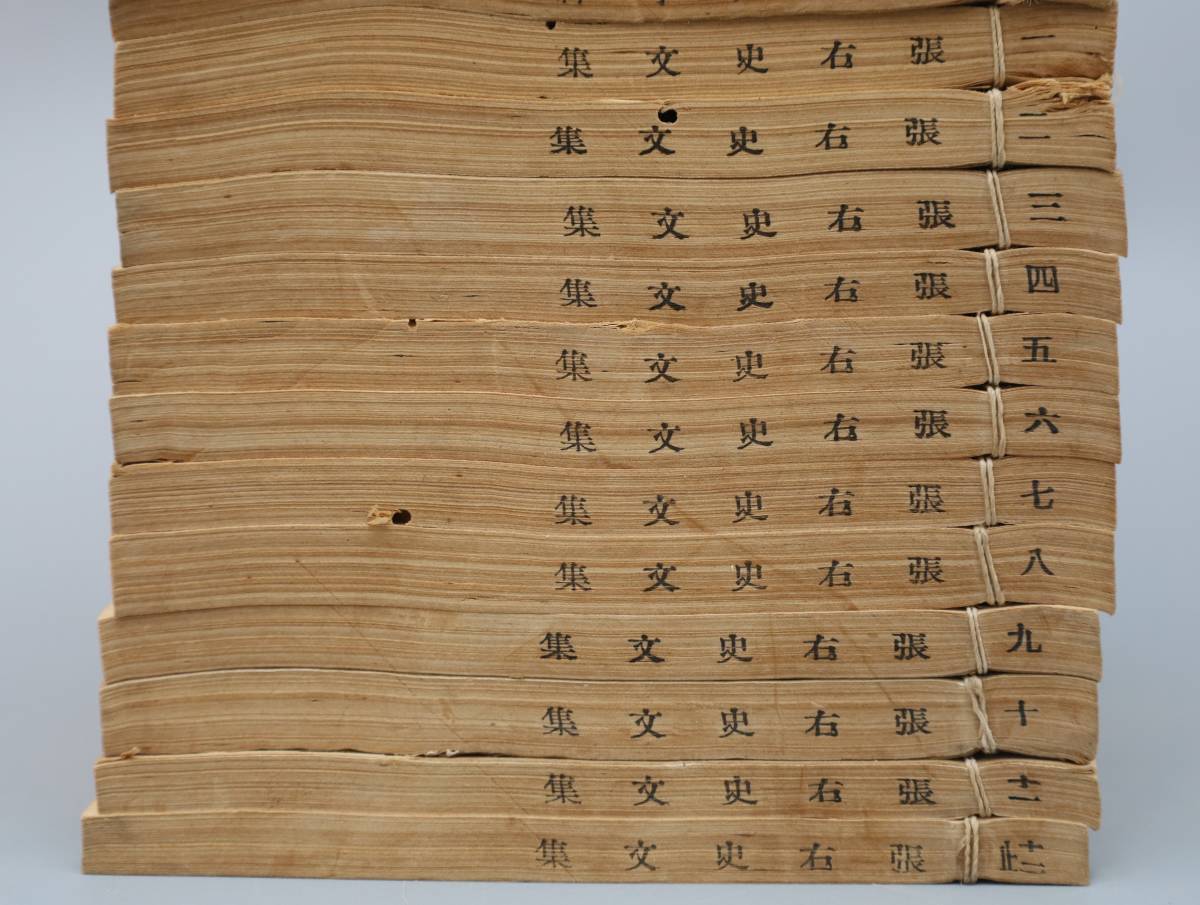 張右史文集 一
張右史文集 二
張右史文集 三
張右史文集 四
張右史文集 五
張右史文集 六
張右史文集 七
張右史文集 八
張右史文集 九
張右史文集 十
張右史文集 十一
張右史文集 十二止